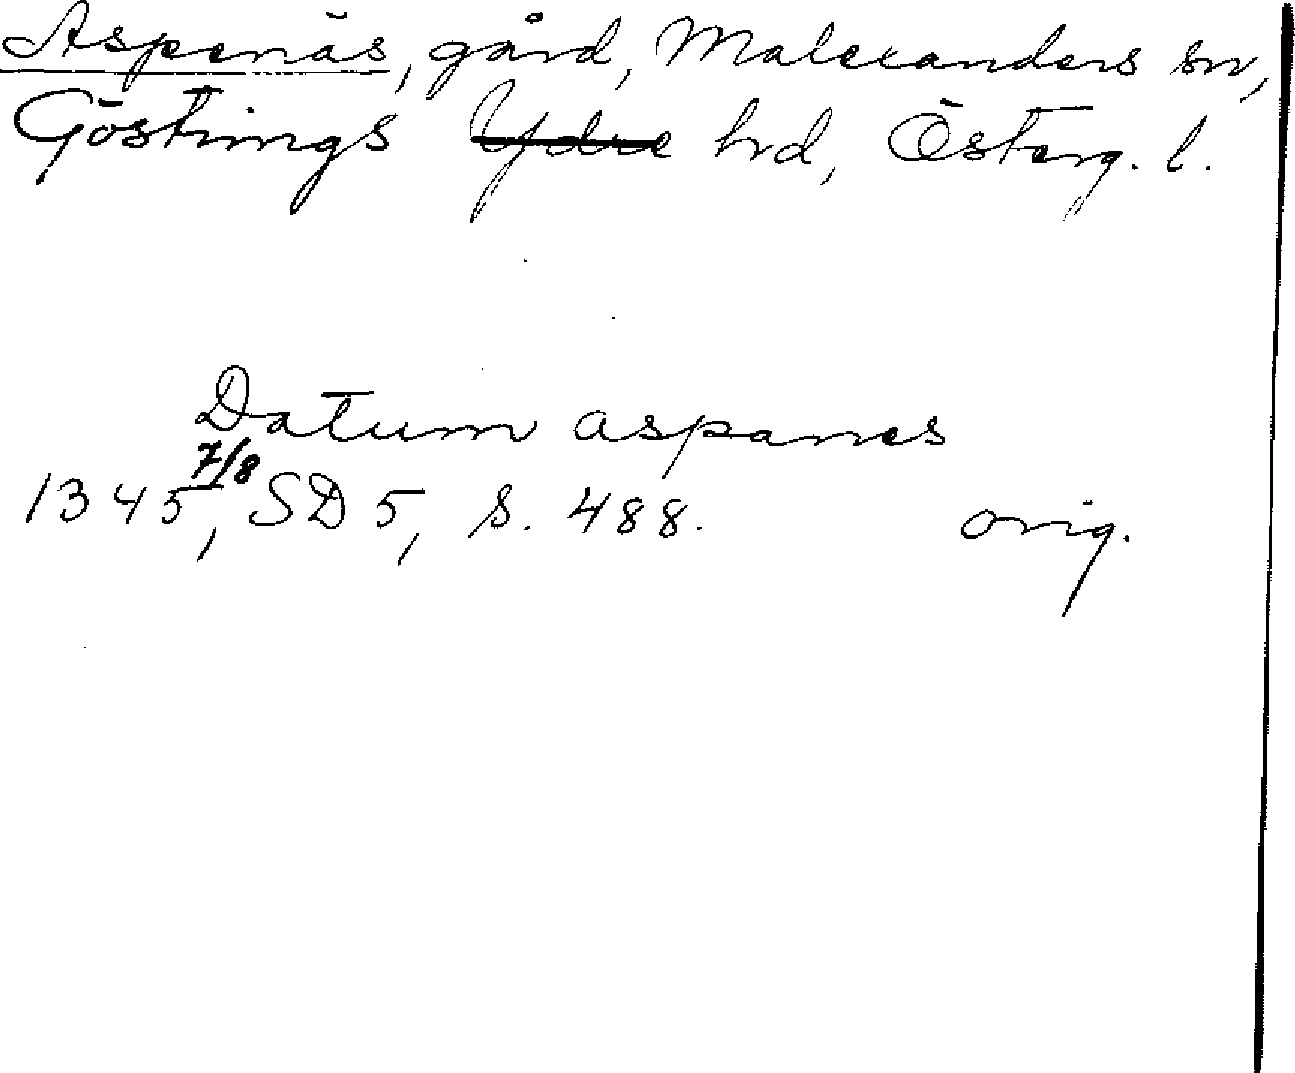 Aspenäs, gård, Malexanders sn,
Göstrings Ydre hrd, Österg. l.
Datum aspanes
1345 7/8, SD 5, s. 488. orig.